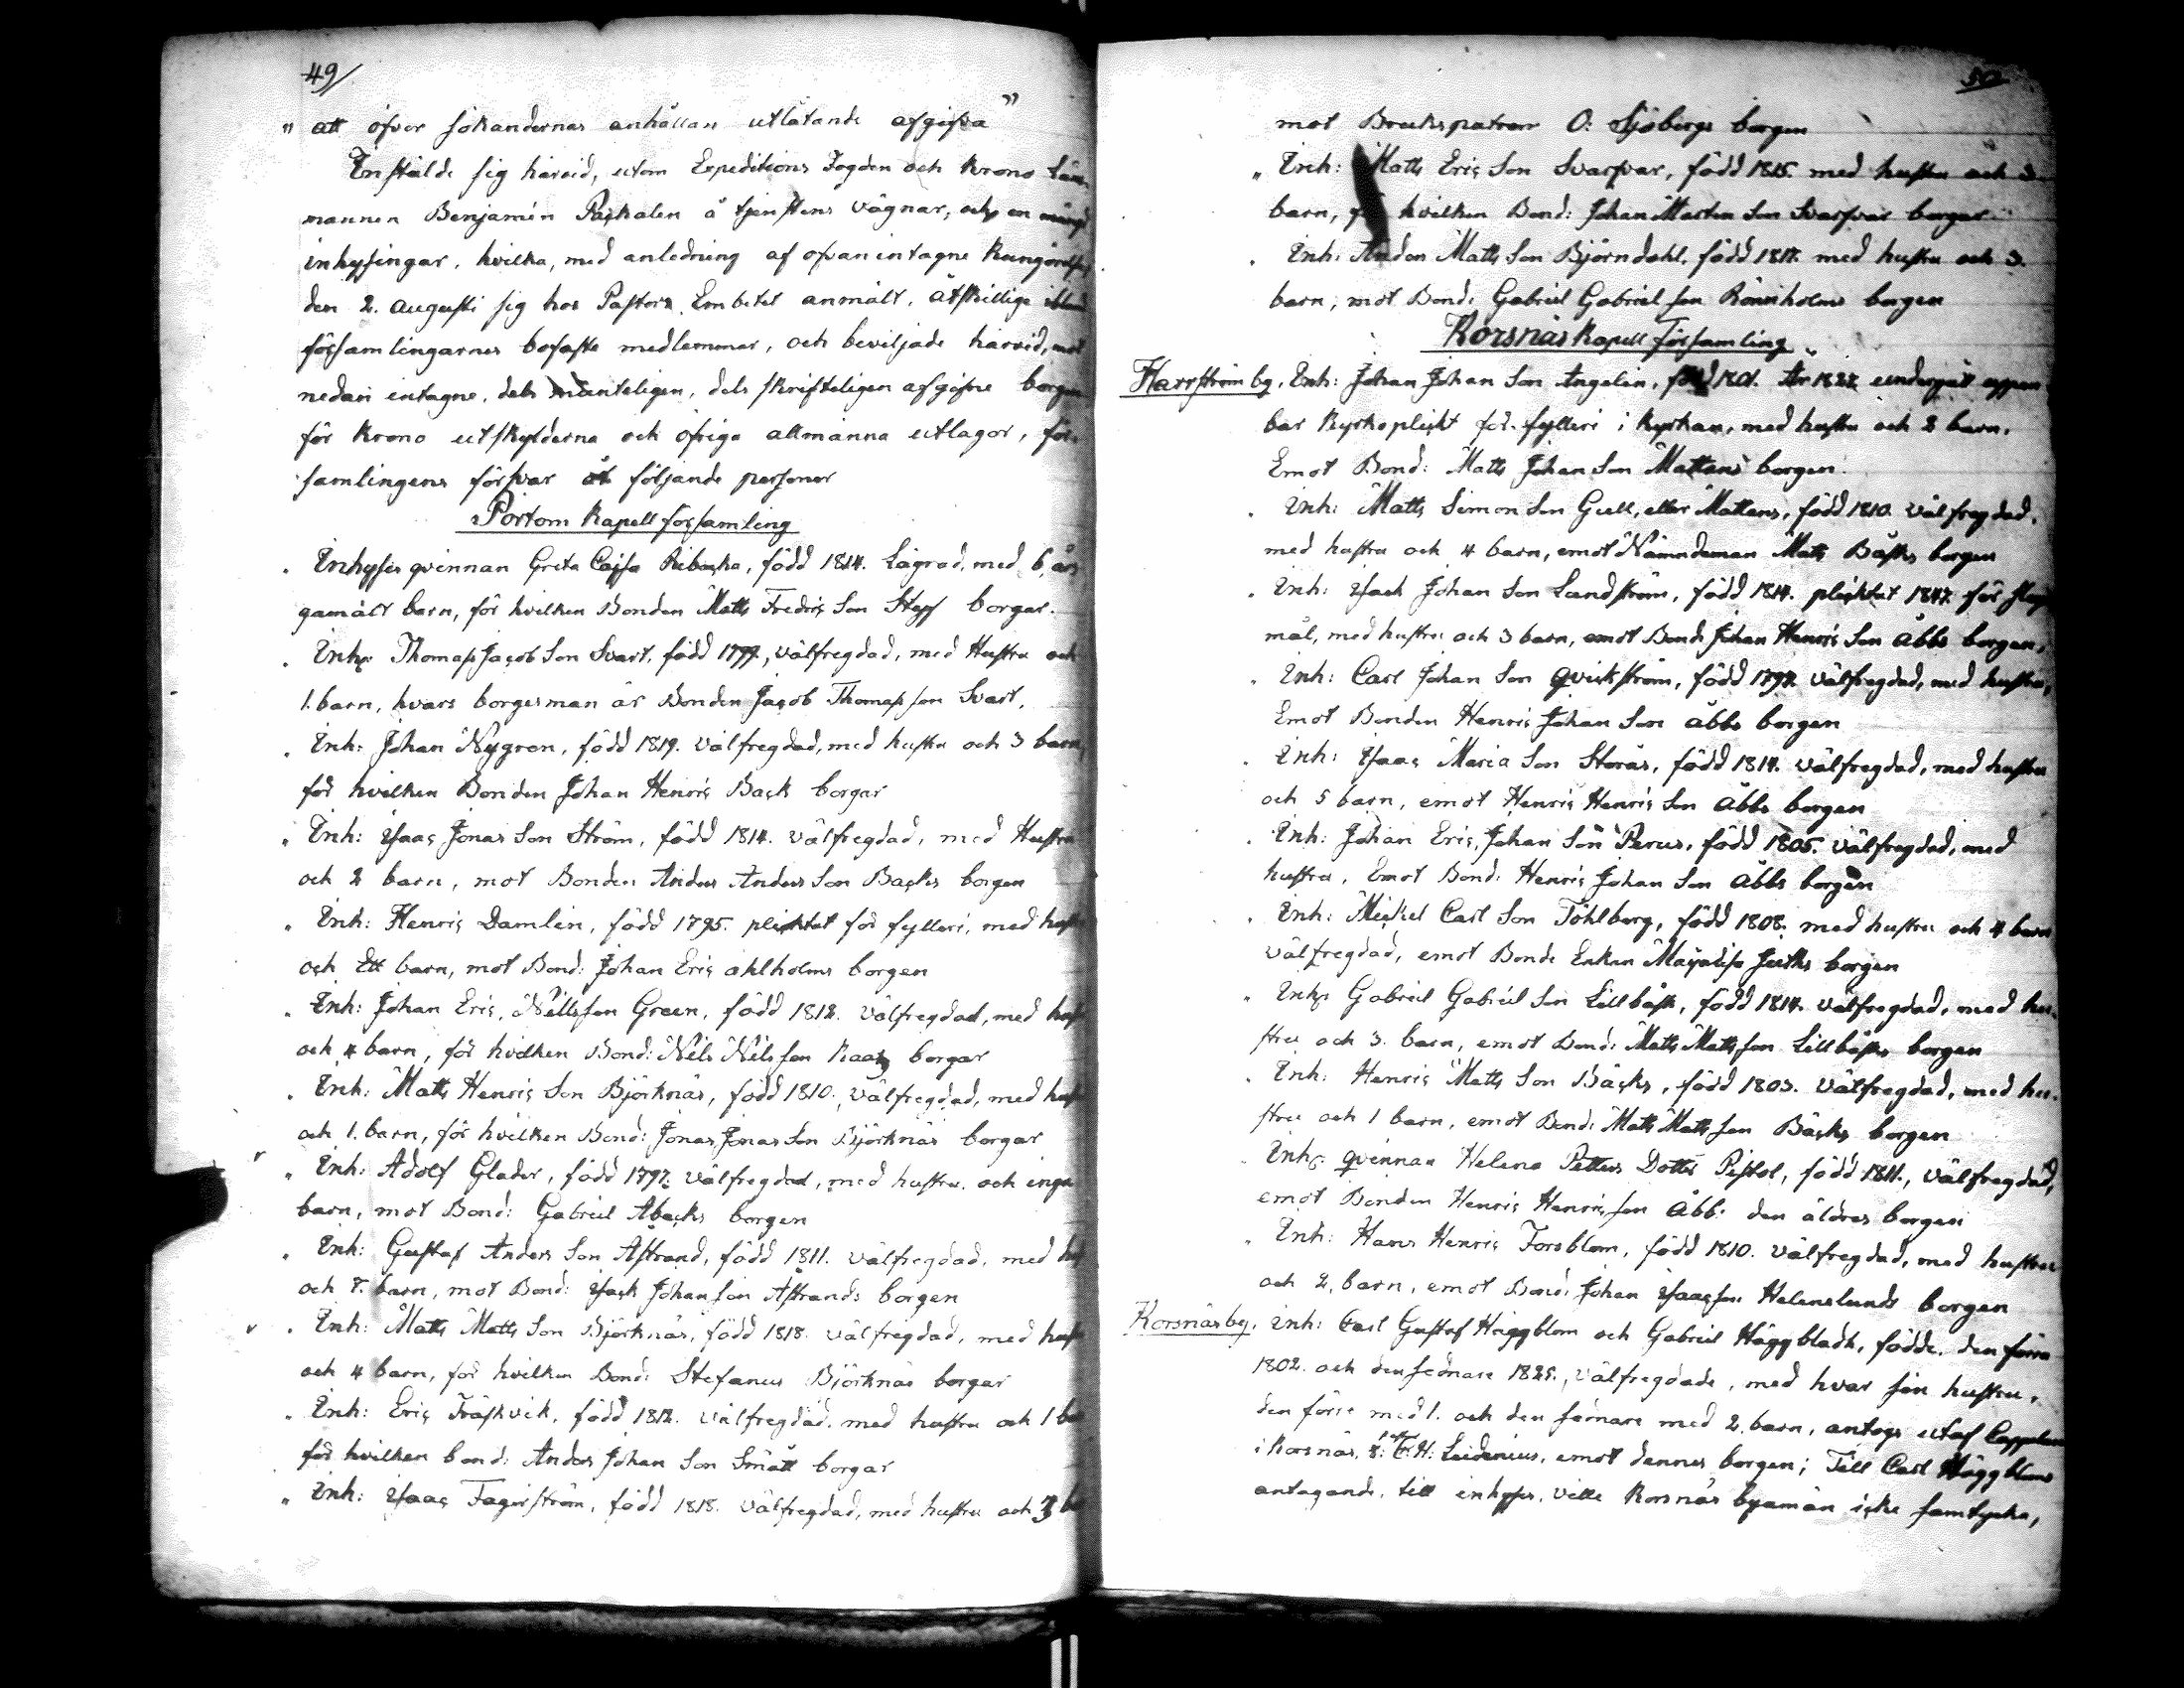 49/
" att öfver sökandernas anhållan utlåtande afgifva "
Instälde sig härvid, utom Expeditions Fogden och Krono Läns
mannen Benjamin Paskalen å tjenstens vägnar, en mängd
inhysingar, hvilka, med anledning af ofvanintagne kungörelse
den 2. Augusti sig hos Pastors Embetet anmält, åtskillige ibland
församlingarnes bofaste medlemmar, och beviljade härvid, mot
nedan intagne, dels munteligen, dels skrifteligen afgifne borgen
för Krono utskylderna och öfriga allmänna utlagor, för-
samlingens försvar åt följande personer
Pörtom Kapell församling
. Inhyses qvinnan Greta Cajsa Ribacka, född 1814. Lägrad, med 6. års
gamalt barn, för hvilken Bonden Matts Fredric Son Staf borgar.
. Inh: Thomas Jacob Son Svart, född 1799, välfregdad, med Hustru och
1. barn, hvars borgesman är Bonden Jacob Thomasson Svart.
. Inh: Johan Nygren, född 1819. välfregdad, med hustru och 3 barn,
för hvilken Bonden Johan Henric Back borgar
. Inh: Isaac Jonas Son Ström, född 1814. välfregdad, med Hustru
och 2 barn, mot Bonden Anders Anders Son Backs borgen
" Inh: Henric Damlin, född 1795. pliktat för fylleri, med hustru
och Ett barn, mot Bond: Johan Eric Ahlholms borgen
. Inh: Johan Eric Nillsson Green, född 1812. välfregdad, med hust
och 4 barn, för hvilken Bond: Nils Nilsson Kaatz borgar
. Inh: Matts Henric Son Björknäs, född 1810., välfregdad, med hust
och 1. barn, för hvilken Bond: Jonas Jonas Son Björknäs borgar
" Inh: Adolf Glader, född 1797. välfregdad, med hustru och inga
barn, mot Bond: Gabriel Åbacks borgen
. Inh: Gustaf Anders Son Åstrand, född 1811. välfregdad, med hust
och 7. barn, mot Bond: Isack Johansson Åstrands borgen
v . Inh: Matts Matts Son Björknäs, född 1818. välfregdad, med hust
och 4 barn, för hvilken Bond: Stefanus Björknäs borgar
. Inh: Eric Träskvik, född 1812. välfregdad, med hustru och 1 bar
för hvilken bond: Anders Johan Son Smått borgar
" Inh: Isaac Fagerström, född 1818. välfregdad, med hustru och 3 ba
50
mot Brukspatron O: Sjöbergs borgen
" Inh: Matts Eric Son Svarfvar, född 1815. med hustru och
barn, för hvilken Bond: Johan Mårten Son Svarfvar borgar
. Inh: Anders Matts Son Björndahl, född 1817. med hustru och 3.
barn, mot Bond: Gabriel Gabriel son Rönnholms borgen
Korsnäs Kapell Församling
Harrström by. Inh: Johan Johan Son Angelin, född 1801. År 1827. undergått uppen
bar Kyrkoplickt för fylleri i kyrkan, med hustru och 2 barn.
Emot Bond: Matts Johan Son Mattans borgen.
. Inh: Matts Simon Son Gull, eller Mattans, född 1810. välfregdad,
med hustru och 4 barn, emot Nämndeman Matts Båsks borgen
. Inh: Isack Johan Son Landström, född 1814. plicktat 1847. för slags
mål, med hustru och 3 barn, emot Bond: Johan Henric Son Åbbs borgen.
. Inh: Carl Johan Son Qvickström, född 1797. välfregdad, med hustru,
Emot Bonden Henric Johan Son Åbbs borgen
. Inh: Isaac Maria Son Storås, född 1814. välfregdad, med hustru
och 5 barn, emot Henric Henric Son Åbbs borgen
. Inh: Johan Eric Johan Son Perus, född 1805. välfregdad, med
hustru, Emot Bond: Henric Johan Son Åbbs borgen
. Inh: Mickel Carl Son Töhlberg, född 1808. med hustru och 4 barn
välfregdad, emot Bonde Enkan Majalisa Juths borgen
" Inh: Gabriel Gabriel Son Lillbåsk, född 1814. välfregdad, med hu-
stru och 3. barn, emot Bond: Matts Mattsson Lillbåsks borgen
. Inh: Henric Matts Son Bäcks, född 1803. välfregdad, med hu-
stru och 1 barn, emot Bond: Matts Mattsson Bäcks borgen
" Inh: qvinnan Helena Petters Dotter Pistol, född 1811., välfregdad,
emot Bonden Henric Henricsson Åbbs den äldres borgen
" Inh: Hans Henric Forsblom, född 1810. välfregdad, med hustru
och 2. barn, emot Bond: Johan Isaacsson Helenelunds borgen
Korsnäs by. Inh: Carl Gustaf Häggblom och Gabriel Häggbladh, födde, den förra
1802. och den sednare 1825., välfregdade, med hvar sin hustru,
den förre med 1. och den sednare med 2. barn, antogs utaf Cappelan
i Korsnäs, H: Leidenius, emot dennes borgen; Till Carl Häggbloms
antagande, till inhyses, ville Korsnäs byamän icke samtycka,